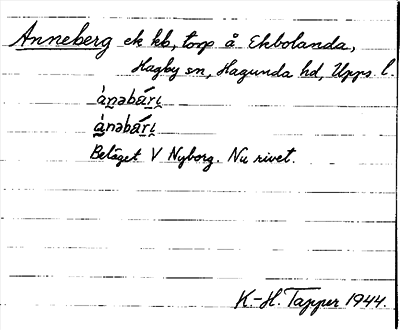 Anneberg ek kb, torp å Ekbolanda,
Hagby sn, Hagunda hd, Upps. l.
ànəbárɩ̣
ànəbárɩ̣
Beläget V Nyborg. Nu rivet.
K.-H. Tapper 1944.